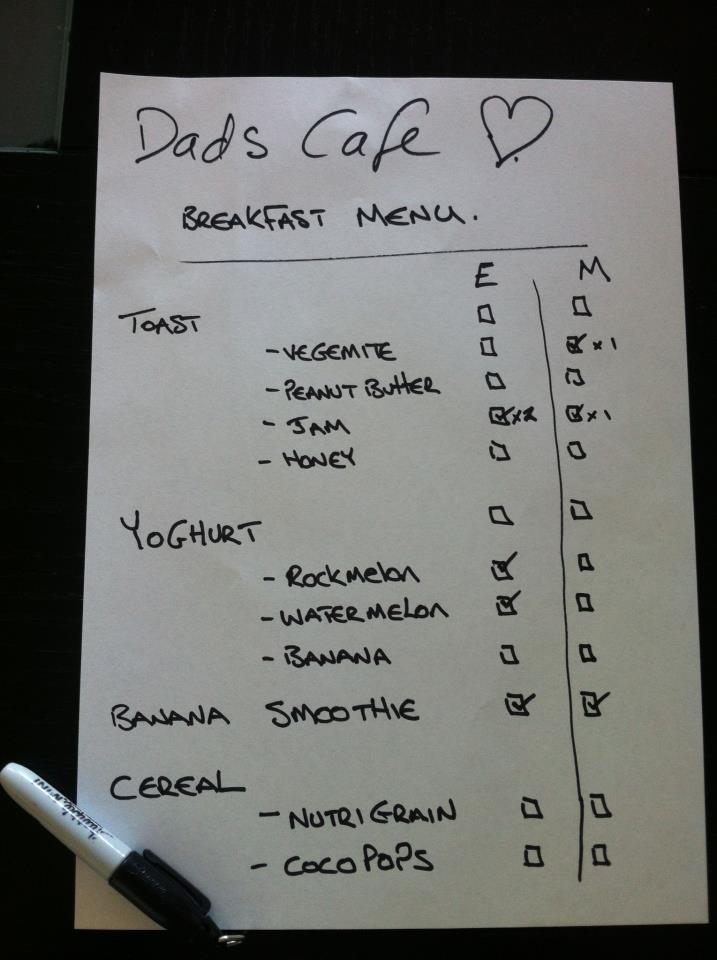 Dads Cafe
BREAKFAST MENU.
E M
TOAST
- VEGEMITE x 1
- PEANUT BUTTER
- JAM x2 x1
- HONEY
YOGHURT
- ROCKMELON
- WATERMELON
- BANANA
BANANA SMOOTHIE
CEREAL
- NUTRIGRAIN
- COCO POPS